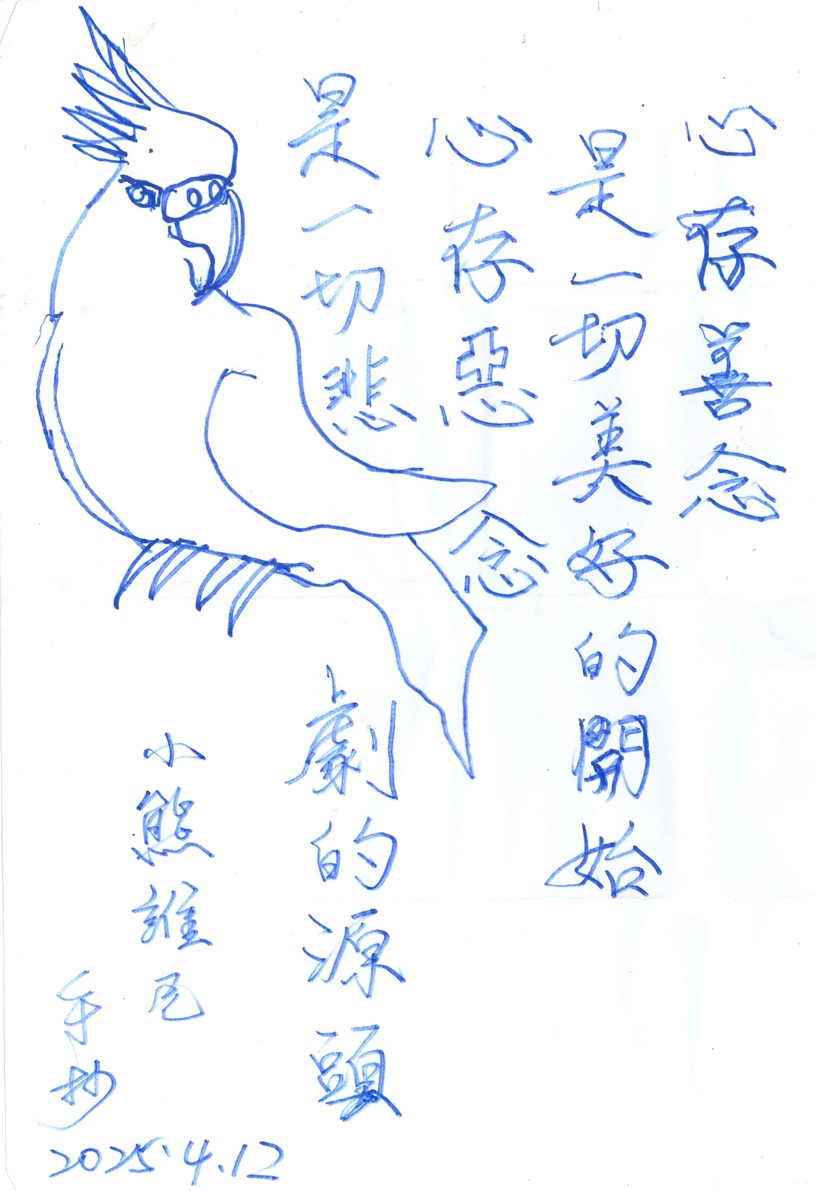 心存善念
是一切美好的開始
心存惡念
是一切悲劇的源頭
小熊誰尼
手抄
2025.4.12